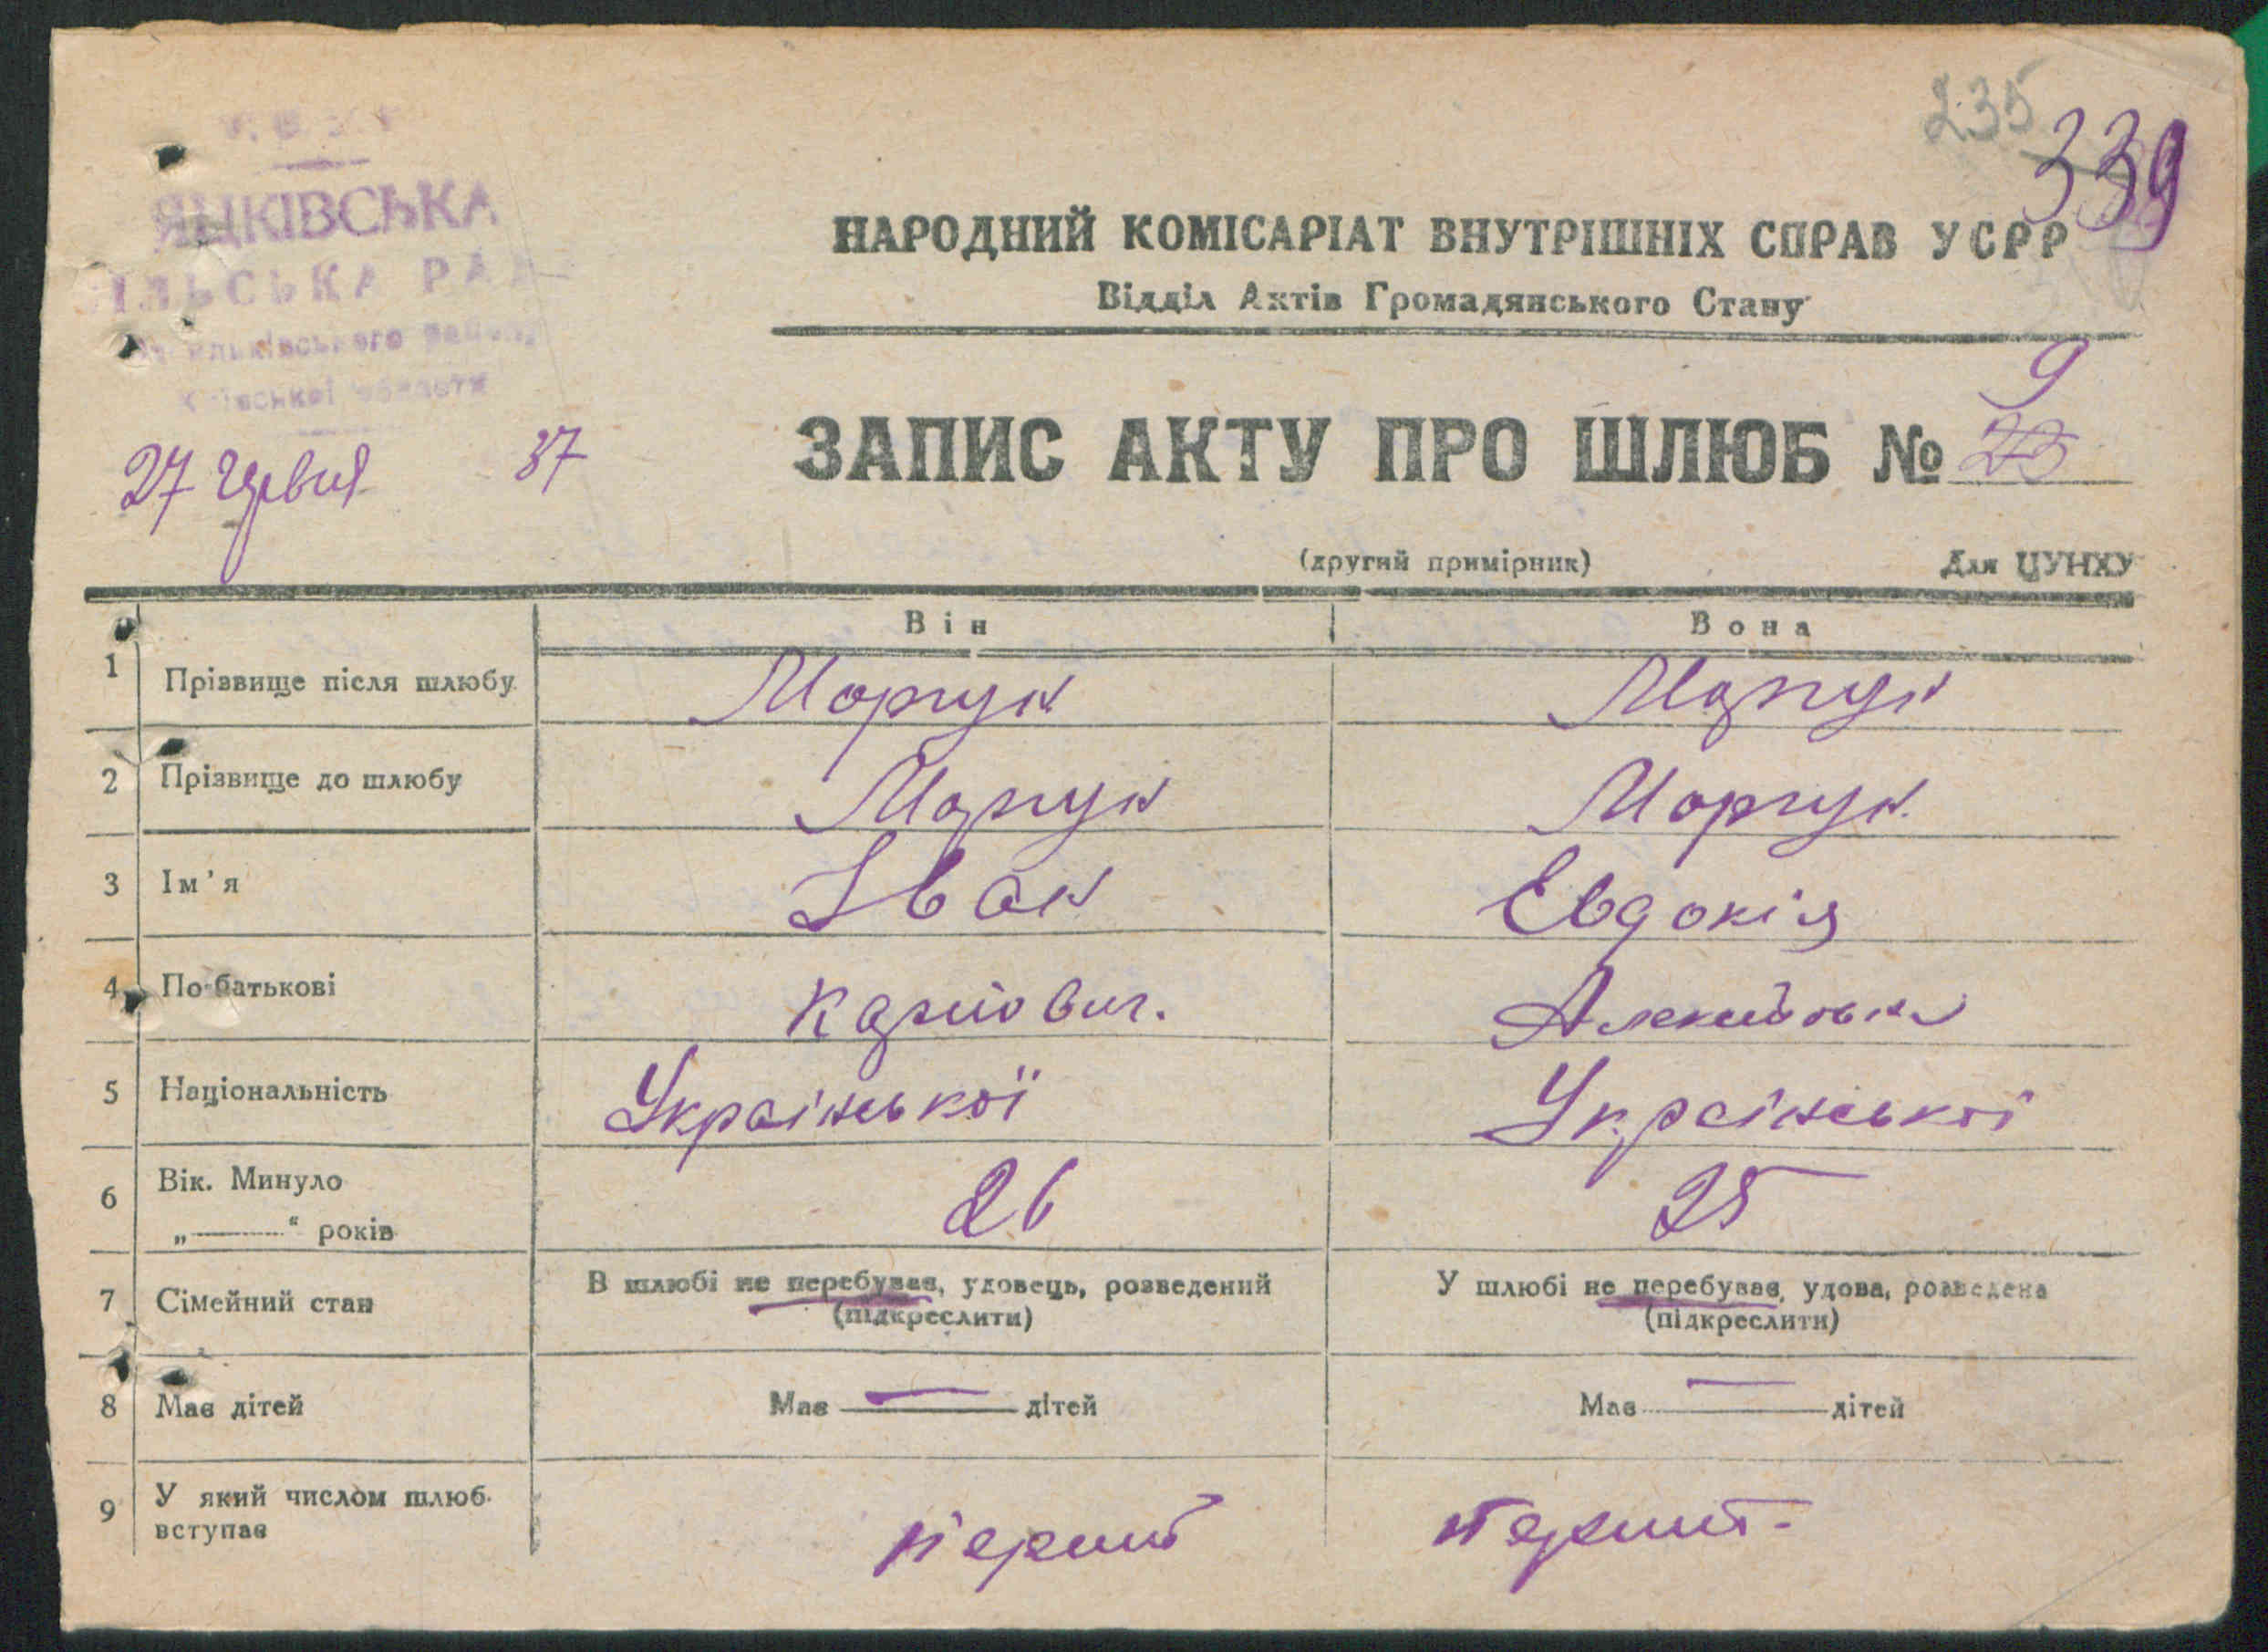 235
339
ЯЦКІВСЬКА
ІЛЬСЬКА РАД
Київської області
НАРОДНИЙ КОМІСАРІАТ ВНУТРІШНІХ СПРАВ УСРР
Відділ Актів Громадянського Стану
9
27 червня 37
ЗАПИС АКТУ ПРО ШЛЮБ № 23
(другий примірник) Для ЦУНХУ
Він Вона
1 Прізвище після шлюбу Моргун Моргун
2 Прізвище до шлюбу Моргун Моргун
3 Ім'я Іван Евдокія
4 По-батькові Карпович.
5 Національність Української Української
6 Вік. Минуло 26 25
„ — “ років
7 Сімейний стан В шлюбі не перебував, удовець, розведений У шлюбі не перебував, удова, розведена
(підкреслити) (підкреслити)
8 Має дітей Має — дітей Має — дітей
9 У який числом шлюб перший перший
вступає